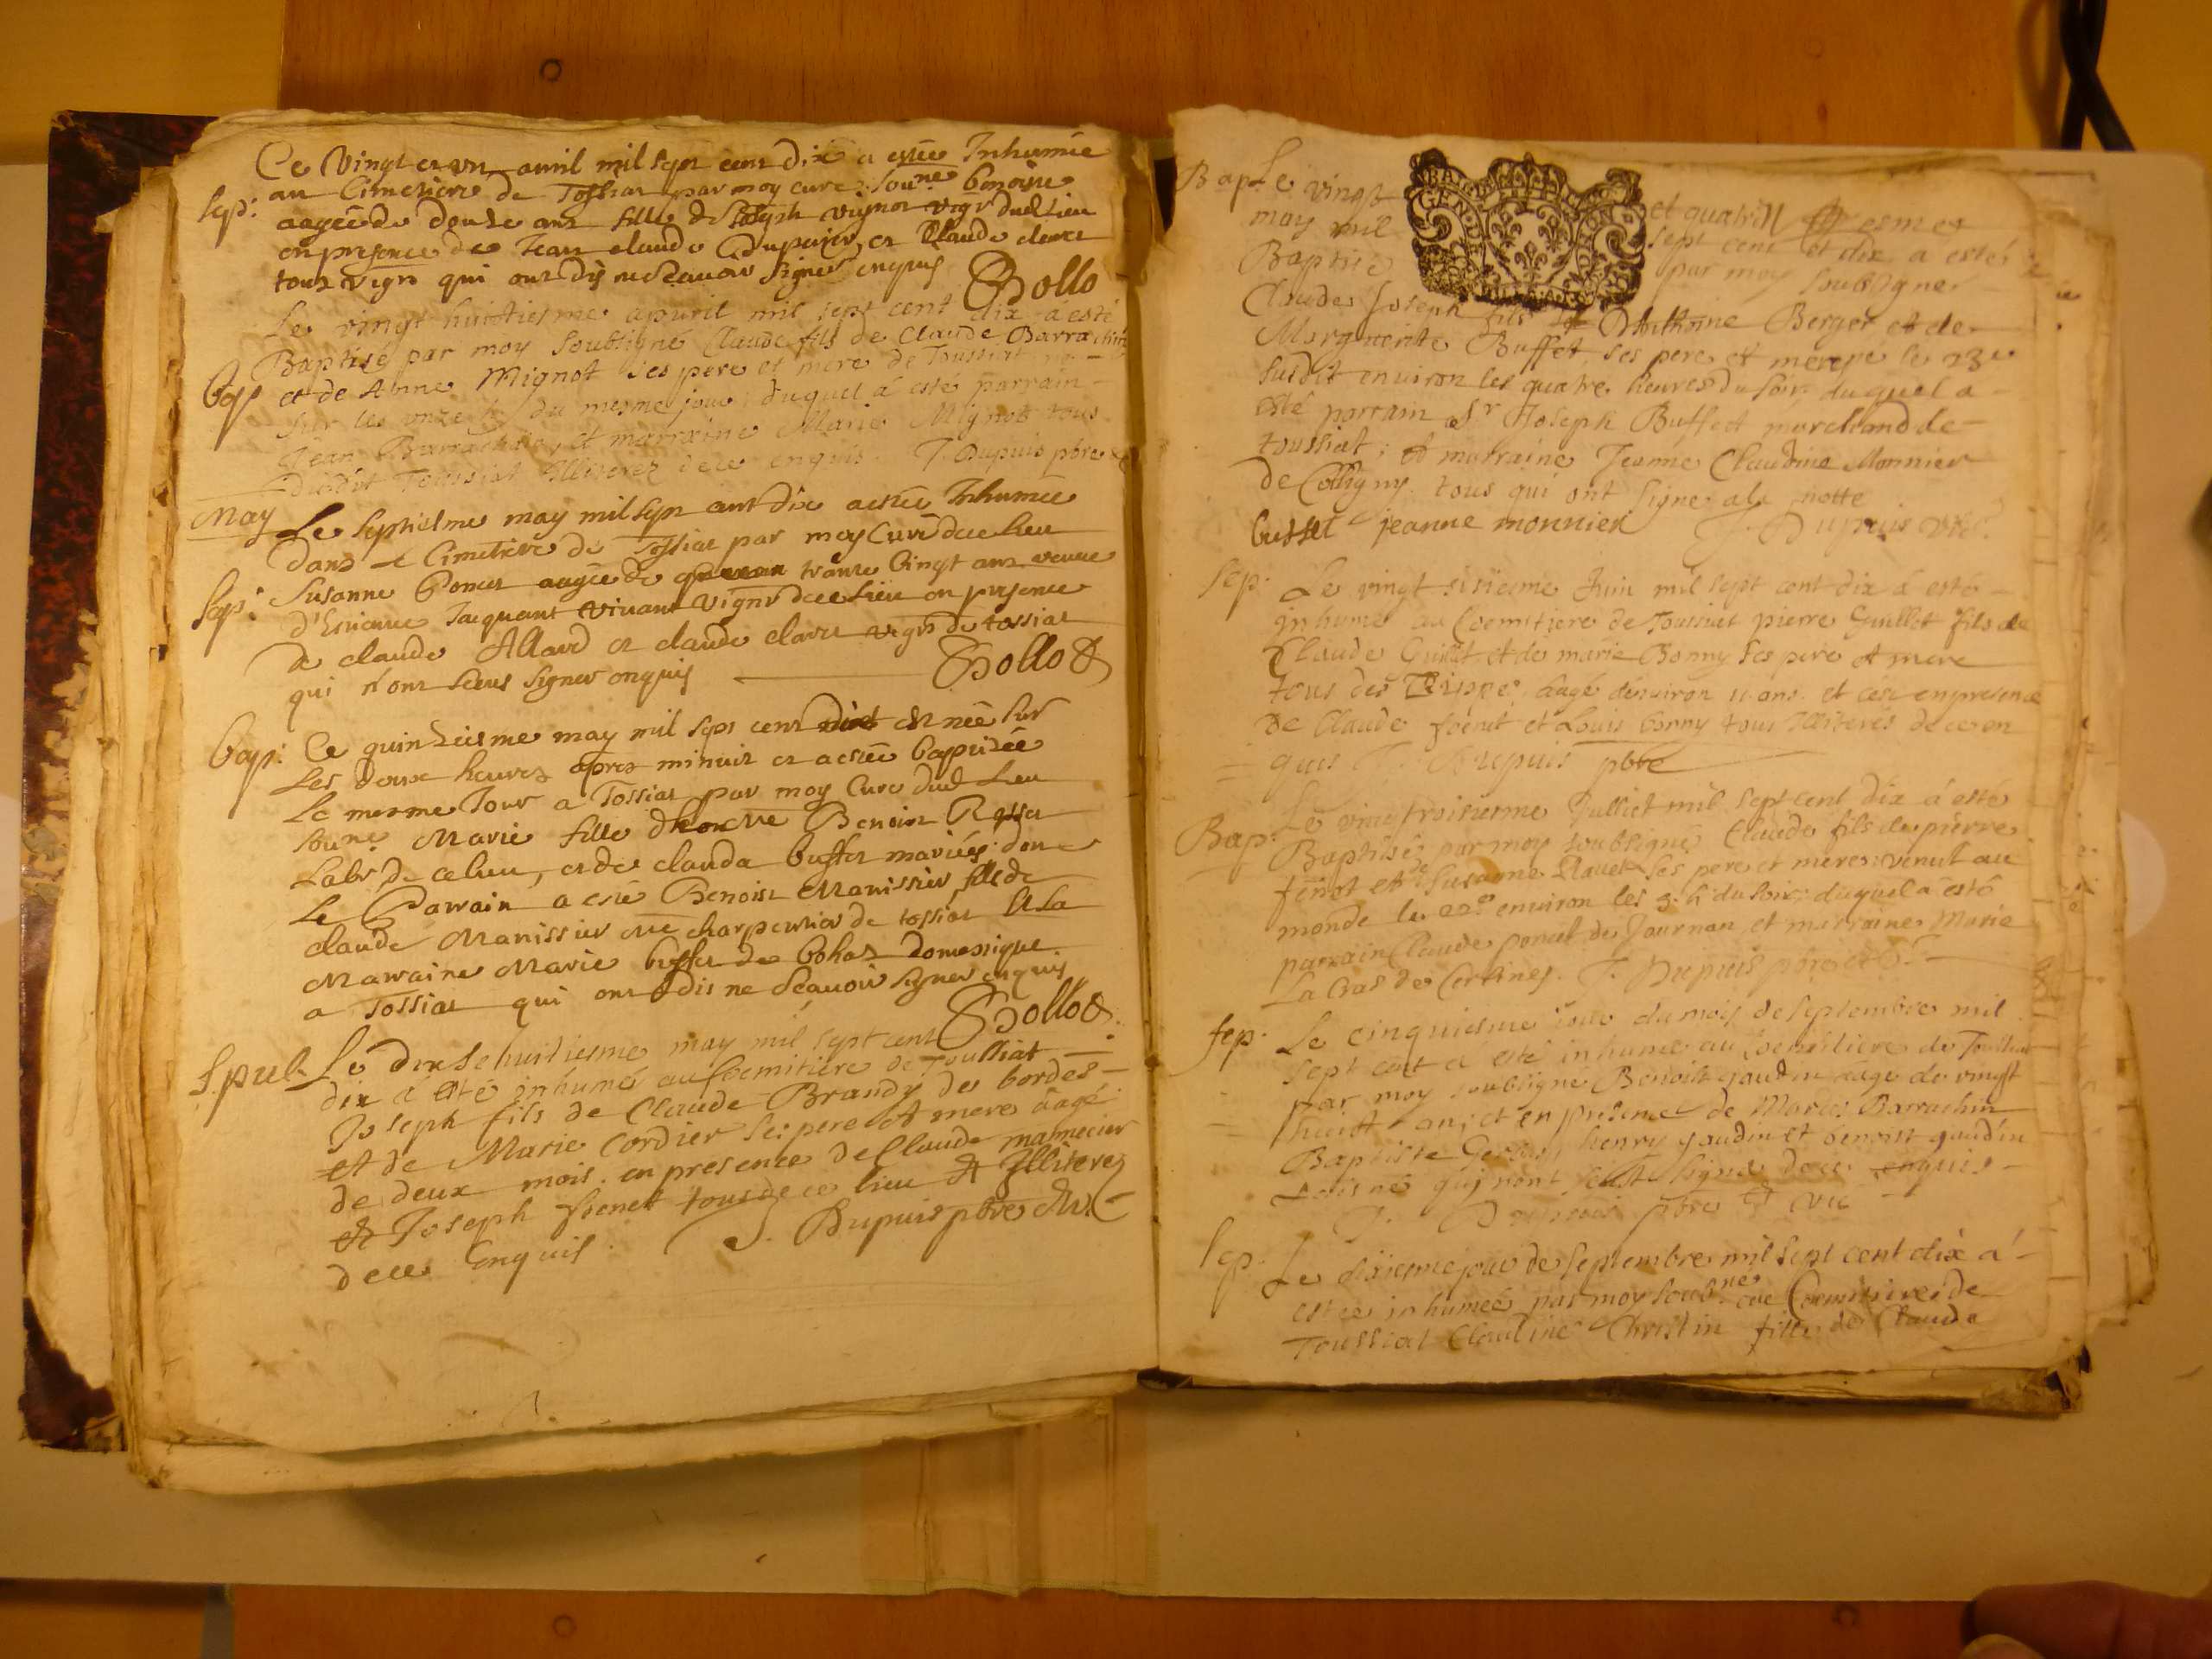 Ce Vingt et vn avril mil sept cent Dix a estée Inhumée
Sep: au Cimetiere de Tossiat par moy curé sou.ne benoiste
aagée de douse ans fille de Joseph vignon vign dud lieu
en presence de Jean claude Dupuis, et Claude
tous vign qui ont dis ne scavoir signer enquis Bollo
Le vingt huictiesme apuril mil sept cent dix a esté
Bap Baptisé par moy soubsigné Claude fils de Claude Barrachin
et de Anne Mignot ses pere et mere de Toussiat
sur les unze h. du mesme jour duquel á esté parrain
Jean Barrachin, et marraine Marie Mignot tous
dudit Toussiat Illiterez de ce enquis. J. Dupuis pbre
May Le septiesme may mil sept cent dix a estée Inhumée
Dans le Cimetiere de Tossiat par moy Curé de ce lieu
Sep: Susanne Poncet aagée de quatre vingt ans veuve
d'Estienne Jaquant vivant vign de ce lieu en presence
de claude Allard et claude clavet vign de tossiat
qui n'ont sceus signer enquis Bollo
bap: Ce quinziesme may mil sept cent dix est née sur
Les deux heures apres minuit et a estée baptisée
Le mesme Jour a Tossiat par moy Curé dud Lieu
sou.né Marie fille d'ho Benoit
Labr de ce lieu, et de clauda buffet mariés: dont
Le Parrain a esté Benoist Manissier fils de
claude Manissier me charpentier de tossiat et La
Marraine Marie buffet de bohas domestique
a Tossiat qui ont dis ne scavoir signer enquis
Bollo
Spul. Le dix huictiesme may mil sept cent
dix á esté inhumé au Coemitiere de Toussiat
Joseph fils de Claude Brandy de bordes
et de Marie Cordier ses pere et mere aagé
de deux mois. en presence de Claude
et Joseph fienet tous de ce lieu et Illiterez
de ce Enquis. J. Dupuis pbre et vic
Bap. Le vingt et quatriesme
may mil sept cent et dix a esté
Baptisé par moy soubsigné
Claude Joseph fils d'Anthoine Berger et de
Marguerite Buffet ses pere et mere né le 23e
susdit environ les quatre heures du soir. duquel a
esté parrain Sr Joseph Buffet marchand de
toussiat; et marraine Jeanne Claudine Monnier
de Colligny. tous qui ont signé a la notte
buffet jeanne monnier J Dupuis vic.
Sep. Le vingt sixiesme Juin mil sept cent dix á esté
inhumé au Coemitiere de Toussiat pierre Guillot fils de
Claude Guillot et de marie Bonny ses pere et mere
tous de aagé d'environ 11 ans. et ce en presence
de Claude fienet et Louis bonny tous Illiterés de ce en
quis J. Dupuis pbre
Bap. Le vingt troisiesme Julliet mil sept cent dix á esté
Baptisé par moy soubsigné Claude fils de pierre
fenot et de Susanne Clavet ses pere et mere: venut au
monde le 22e environ les 3. h. du soir; duquel a esté
parrain Claude poncet de Journan, et marraine Marie
La Cras de Certines. J. Dupuis pbre et vic
sep. Le cinquiesme jour du mois de septembre mil
sept cent a esté inhumé au Coemitiere de Toussiat
par moy soubsigné Benoist gaudin aagé de vingt
huict ans; et en presence de Barrachin
Baptiste henry gaudin et benoist gaudin
qui nont sceut signé de ce enquis
J. Dupuis pbre et vic
Sep. Le sixiesme jour de septembre mil sept cent dix a
estée inhumée par moy soubs.né au Coemitiere de
Toussiat Claudine Christin fille de Claude